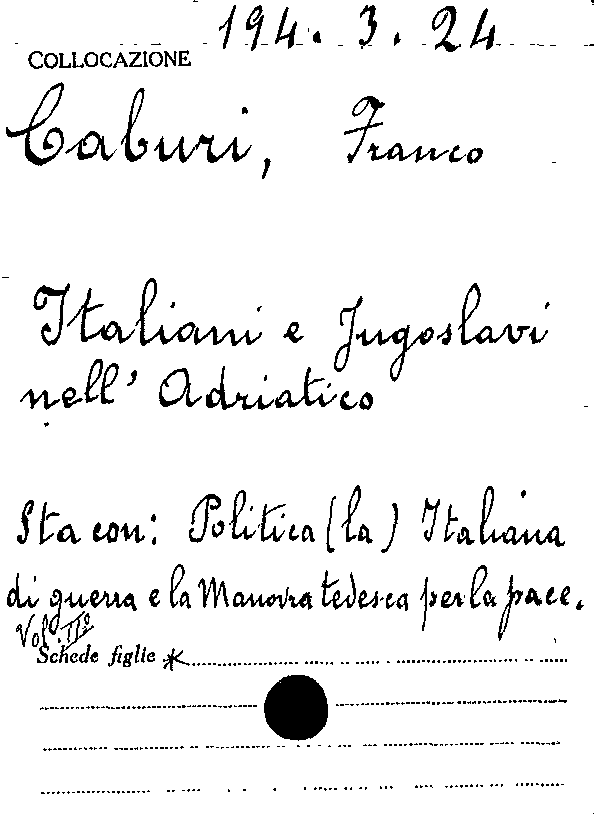 194. 3. 24
COLLOCAZIONE
Caburi, Franco
Italiani e Jugoslavi
nell' Adriatico
Sta con: Politica (la) Italiana
di guerra e la Manovra tedesca per la pace.
Vol. IIº
Schede figlie *